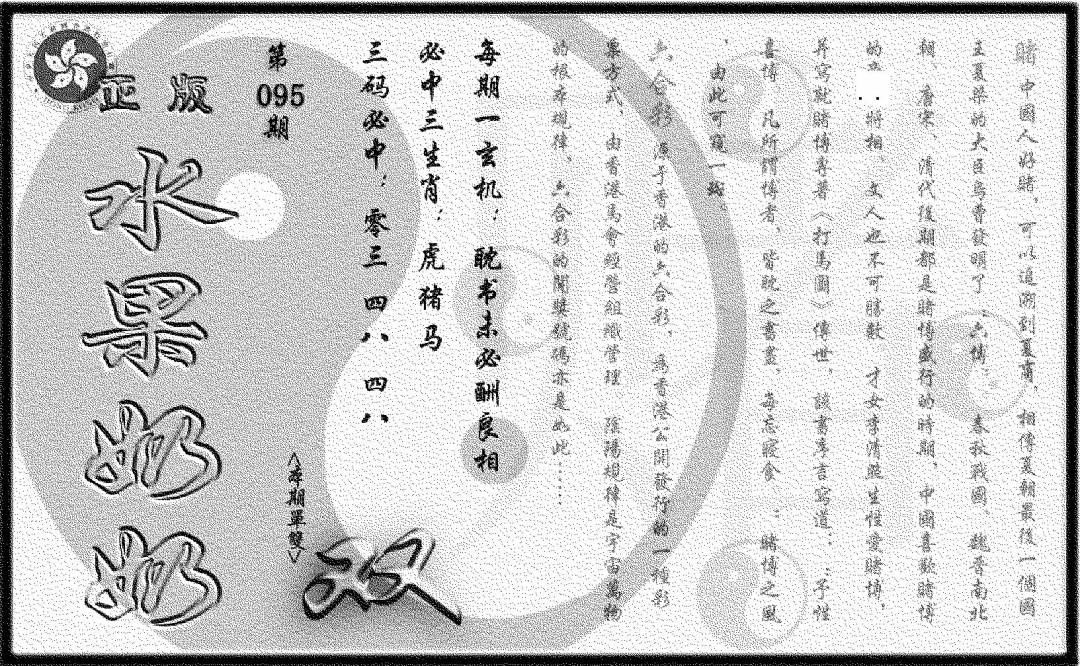 賭中國人好賭，可以追溯到夏商，相傳夏朝最後一個國
主夏桀的大臣烏曹發明了：六博；春秋戰國、魏晉南北
朝、唐宋、清代後期都是賭博盛行的時期，中國喜歡賭博
的..將相 文人也不可勝數 才女李清照生性愛賭博，
并寫就賭博專著《打馬圖》傳世，該書序言寫道：：予性
喜博，凡所謂博者，皆耽之晝，每忘寢食，：賭博之風
，由此可窺一斑。
六合彩 源于香港的六合彩，為香港公開發行的一種彩
票方式，由香港馬會經營組織管理 陰陽規律是宇宙萬物
的根本規律、六合彩的開獎號碼亦是如此……
每期一玄机：耽书未必酬良相
必中三生肖：虎猪马
三码必中：零三 四八、四八
第
095
期
<本期單雙>
双
正版
水果奶奶